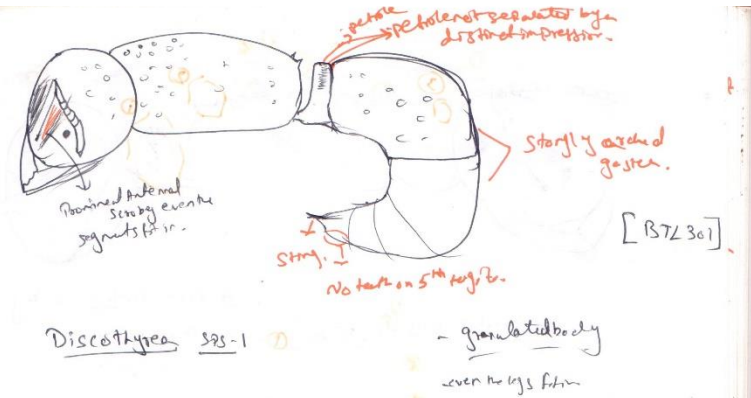 petiole
petiole not separated by a
distinct impression.
Strongly arched
gaster.
Prominent Antennal
Scrobes even the
segments fit in.
[BTL301]
Sting.
No teeth on 5th
Discothyrea sps-1
- granulated body
- even the legs fit in